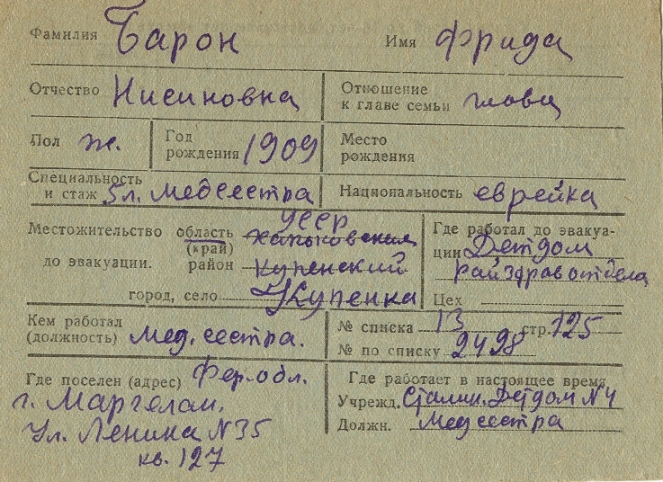 Фамилия Барон Имя Фрида
Отчество Нисиновна Отношение к главе семьи глава
Пол ж. Год рождения 1909 Место рождения
Специальность и стаж 5 л. Медсестра Национальность еврейка
Местожительство до эвакуации. область (край) УССР Харьковская
район Купенский
город, село Купенка
Где работал до эвакуации Детдом
райздравотдела
Цех
Кем работал (должность) мед. сестра.
№ списка 13 стр. 125
№ по списку 2498
Где поселен (адрес) Фер. обл.
г. Маргелан,
Ул. Ленина N 35
кв. 127
Где работает в настоящее время
Учрежд. Сталин. Детдом N 4
Должн. Медсестра